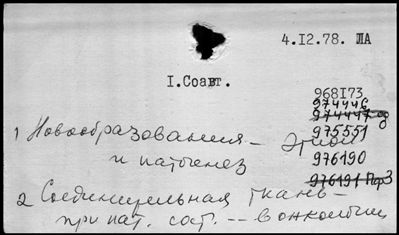 4.I2.78. ЛА
I.Соавт.
968I73
974446
974447
975551
1 Новообразования –
и патогенез
976190
976191
2 Соединительная ткань –
при пат. сост. --